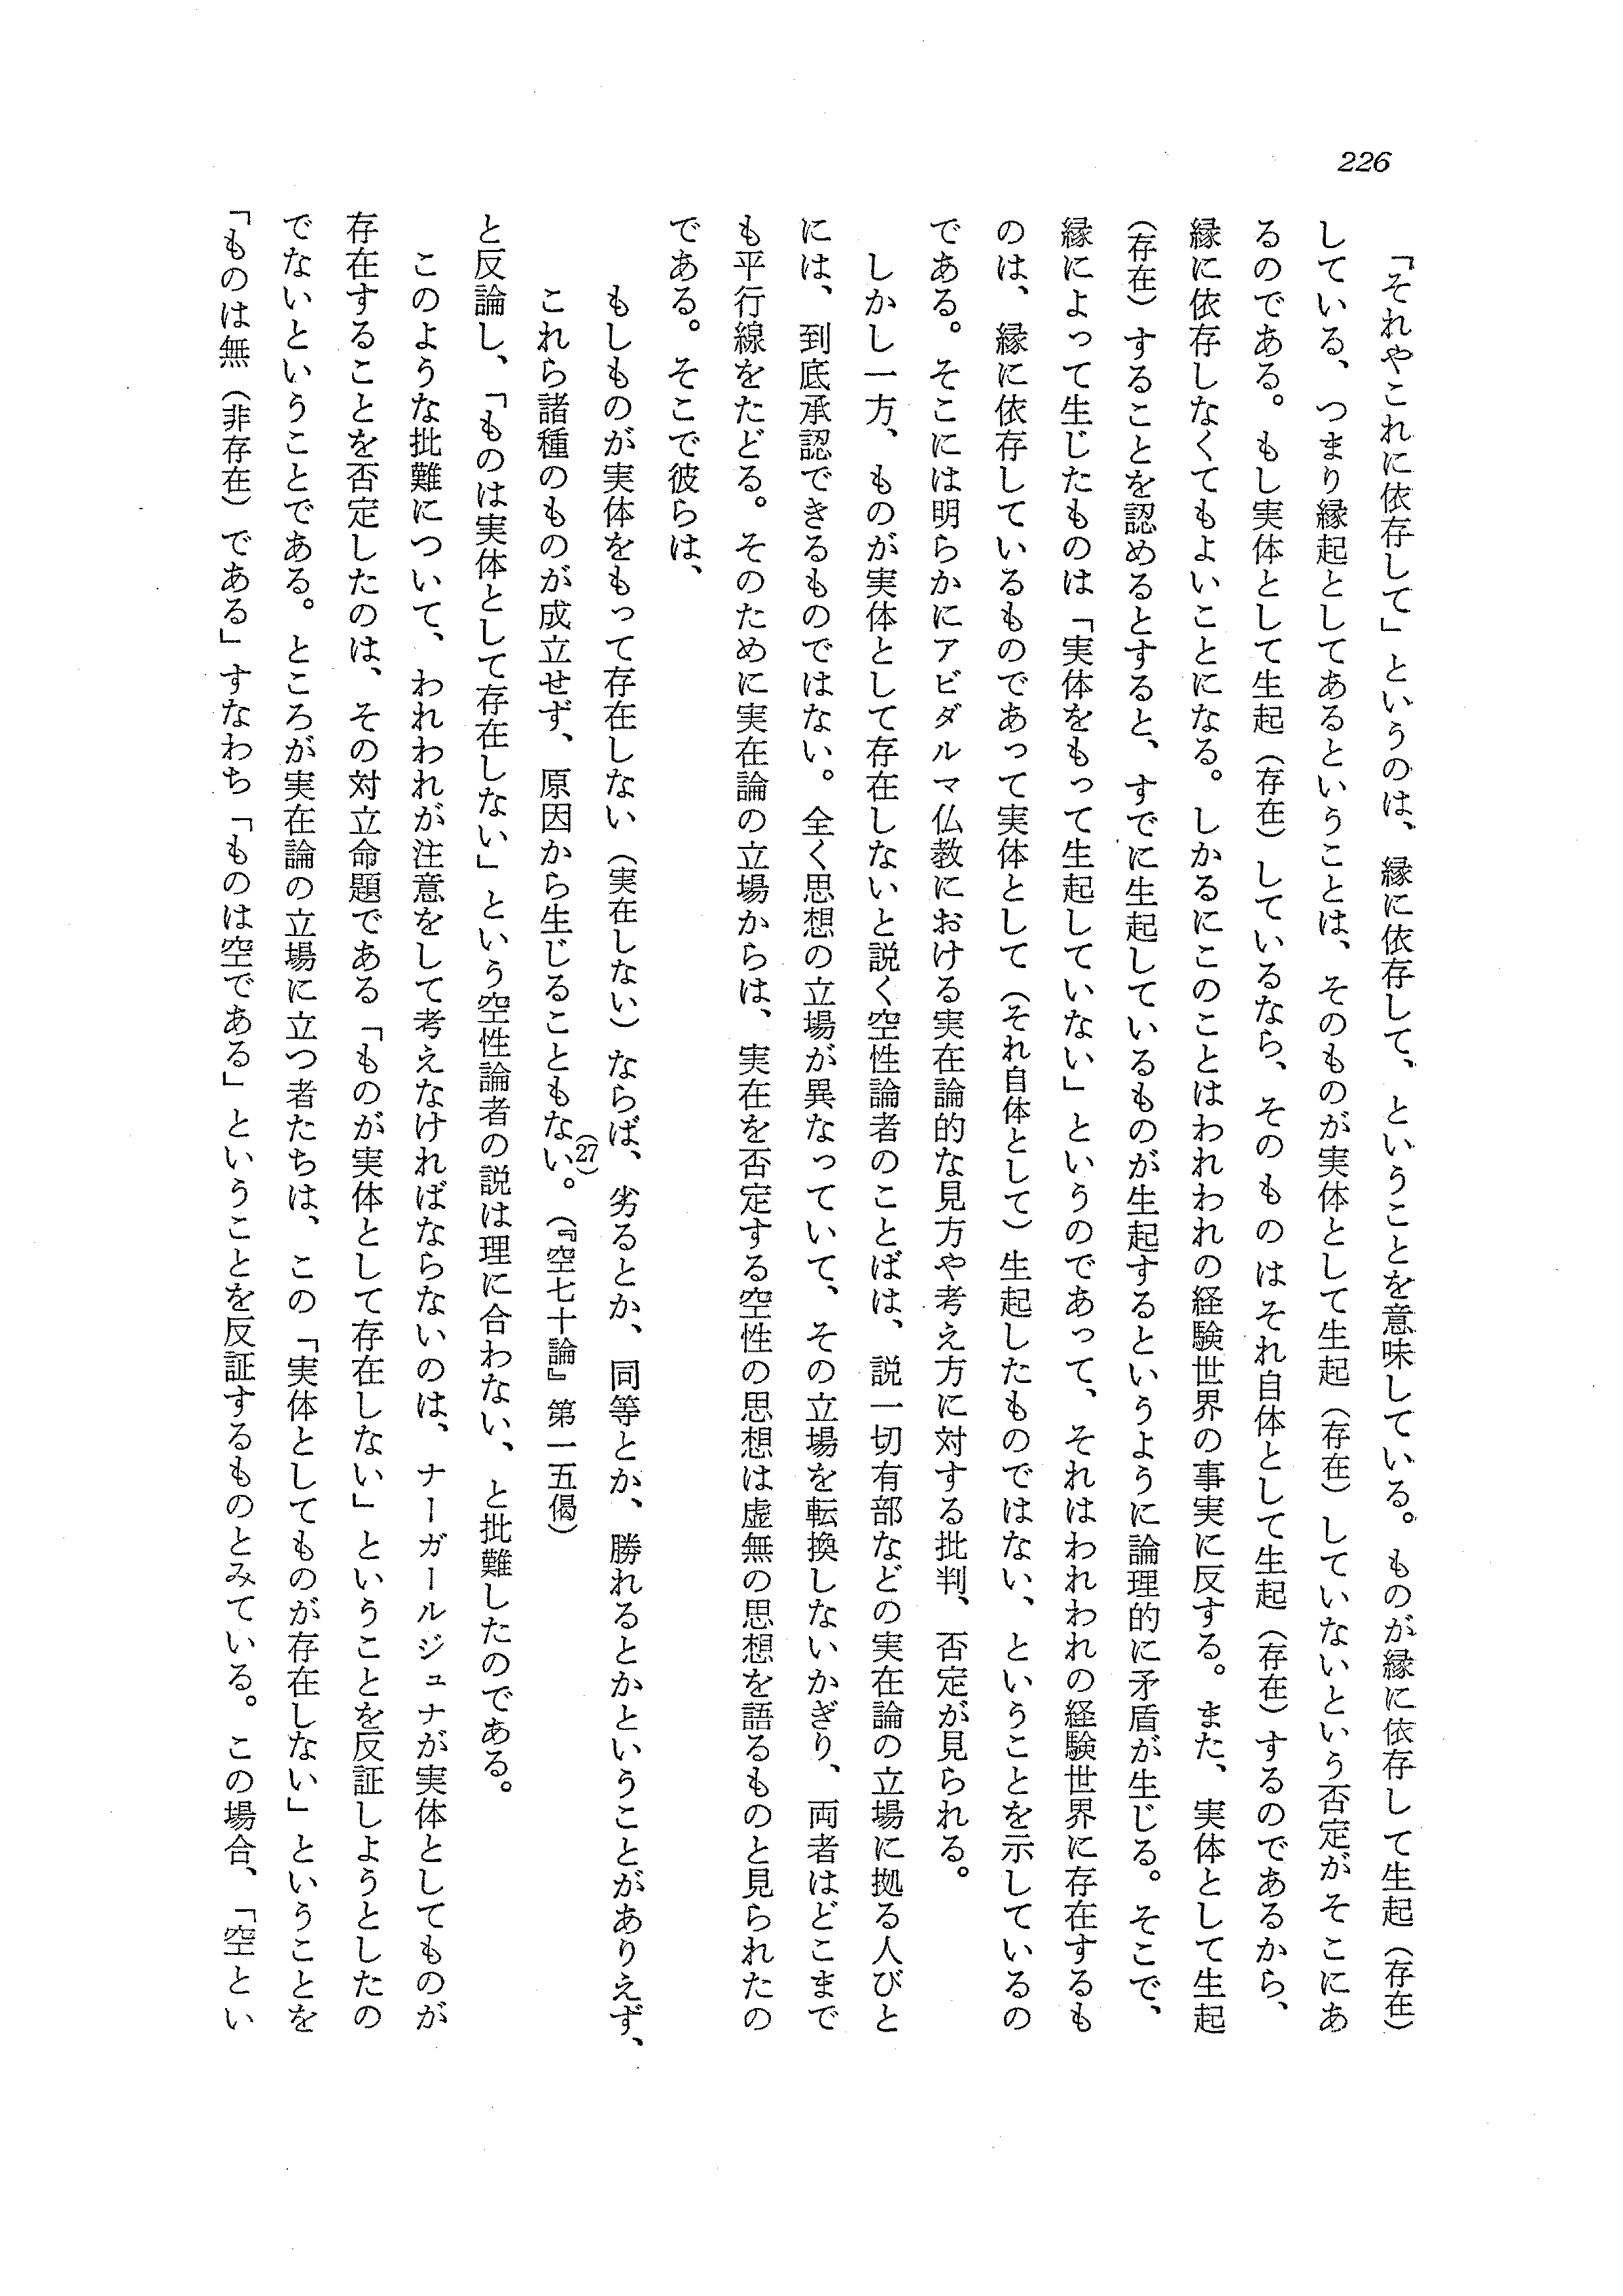 226
「それやこれに依存して」というのは、縁に依存して、ということを意味している。ものが縁に依存して生起（存在）
している、つまり縁起としてあるということは、そのものが実体として生起（存在）していないという否定がそこにあ
るのである。もし実体として生起（存在）しているなら、そのものはそれ自体として生起（存在）するのであるから、
縁に依存しなくてもよいことになる。しかるにこのことはわれわれの経験世界の事実に反する。また、実体として生起
（存在）することを認めるとすると、すでに生起しているものが生起するというように論理的に矛盾が生じる。そこで、
縁によって生じたものは「実体をもって生起していない」というのであって、それはわれわれの経験世界に存在するも
のは、縁に依存しているものであって実体として（それ自体として）生起したものではない、ということを示しているの
である。そこには明らかにアビダルマ仏教における実在論的な見方や考え方に対する批判、否定が見られる。
しかし一方、ものが実体として存在しないと説く空性論者のことばは、説一切有部などの実在論の立場に拠る人びと
には、到底承認できるものではない。全く思想の立場が異なっていて、その立場を転換しないかぎり、両者はどこまで
も平行線をたどる。そのために実在論の立場からは、実在を否定する空性の思想は虚無の思想を語るものと見られたの
である。そこで彼らは、
もしものが実体をもって存在しない（実在しない）ならば、劣るとか、同等とか、勝れるとかということがありえず、
これら諸種のものが成立せず、原因から生じることもない。(27)（『空七十論』第一五偈）
と反論し、「ものは実体として存在しない」という空性論者の説は理に合わない、と批難したのである。
このような批難について、われわれが注意をして考えなければならないのは、ナーガールジュナが実体としてものが
存在することを否定したのは、その対立命題である「ものが実体として存在しない」ということを反証しようとしたの
でないということである。ところが実在論の立場に立つ者たちは、この「実体としてものが存在しない」ということを
「ものは無（非存在）である」すなわち「ものは空である」ということを反証するものとみている。この場合、「空とい